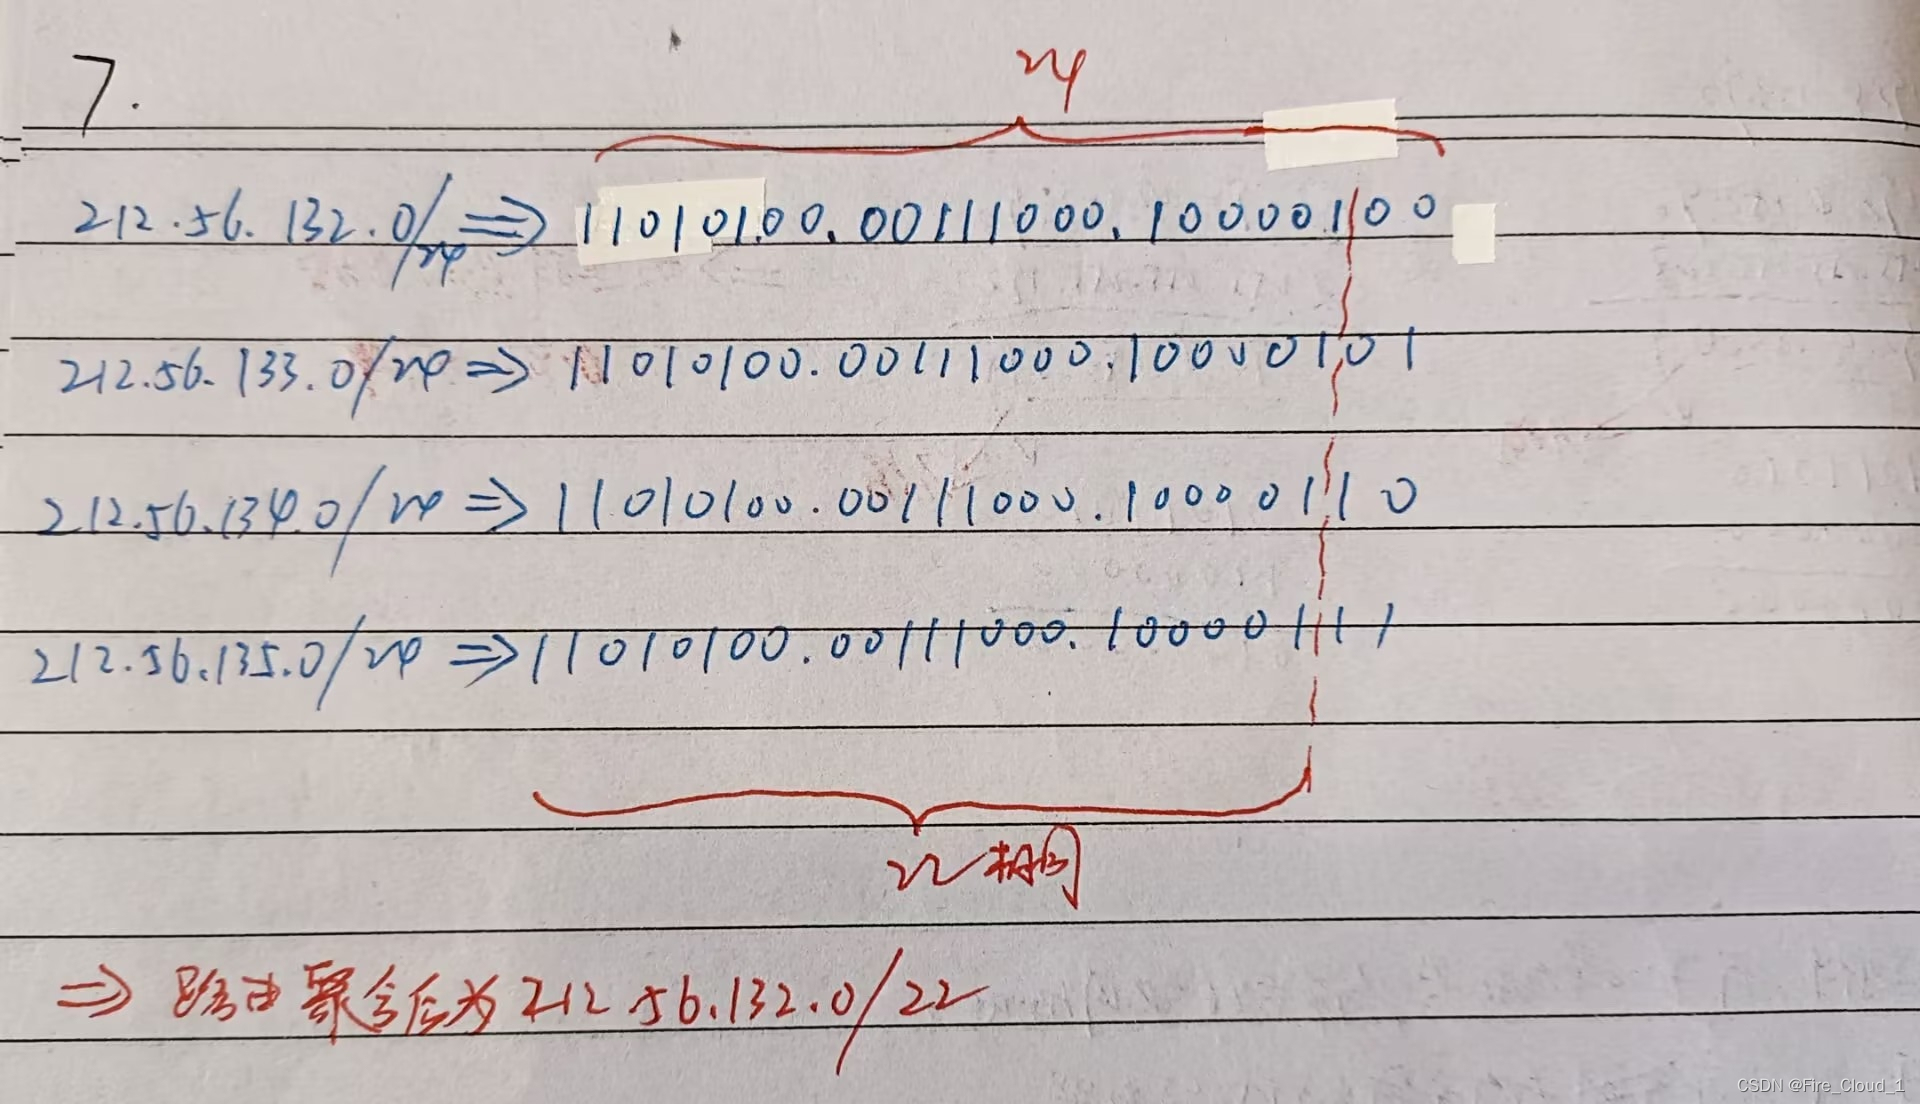 7.
24
212.56.132.0/24 ⇒ 11010100.00111000.10000100
212.56.133.0/24 ⇒ 11010100.00111000.10000101
212.56.134.0/24 ⇒ 11010100.00111000.10000110
212.56.135.0/24 ⇒ 11010100.00111000.10000111
22相同
⇒ 路由聚合后为 212.56.132.0/22
CSDN @Fire_Cloud_1